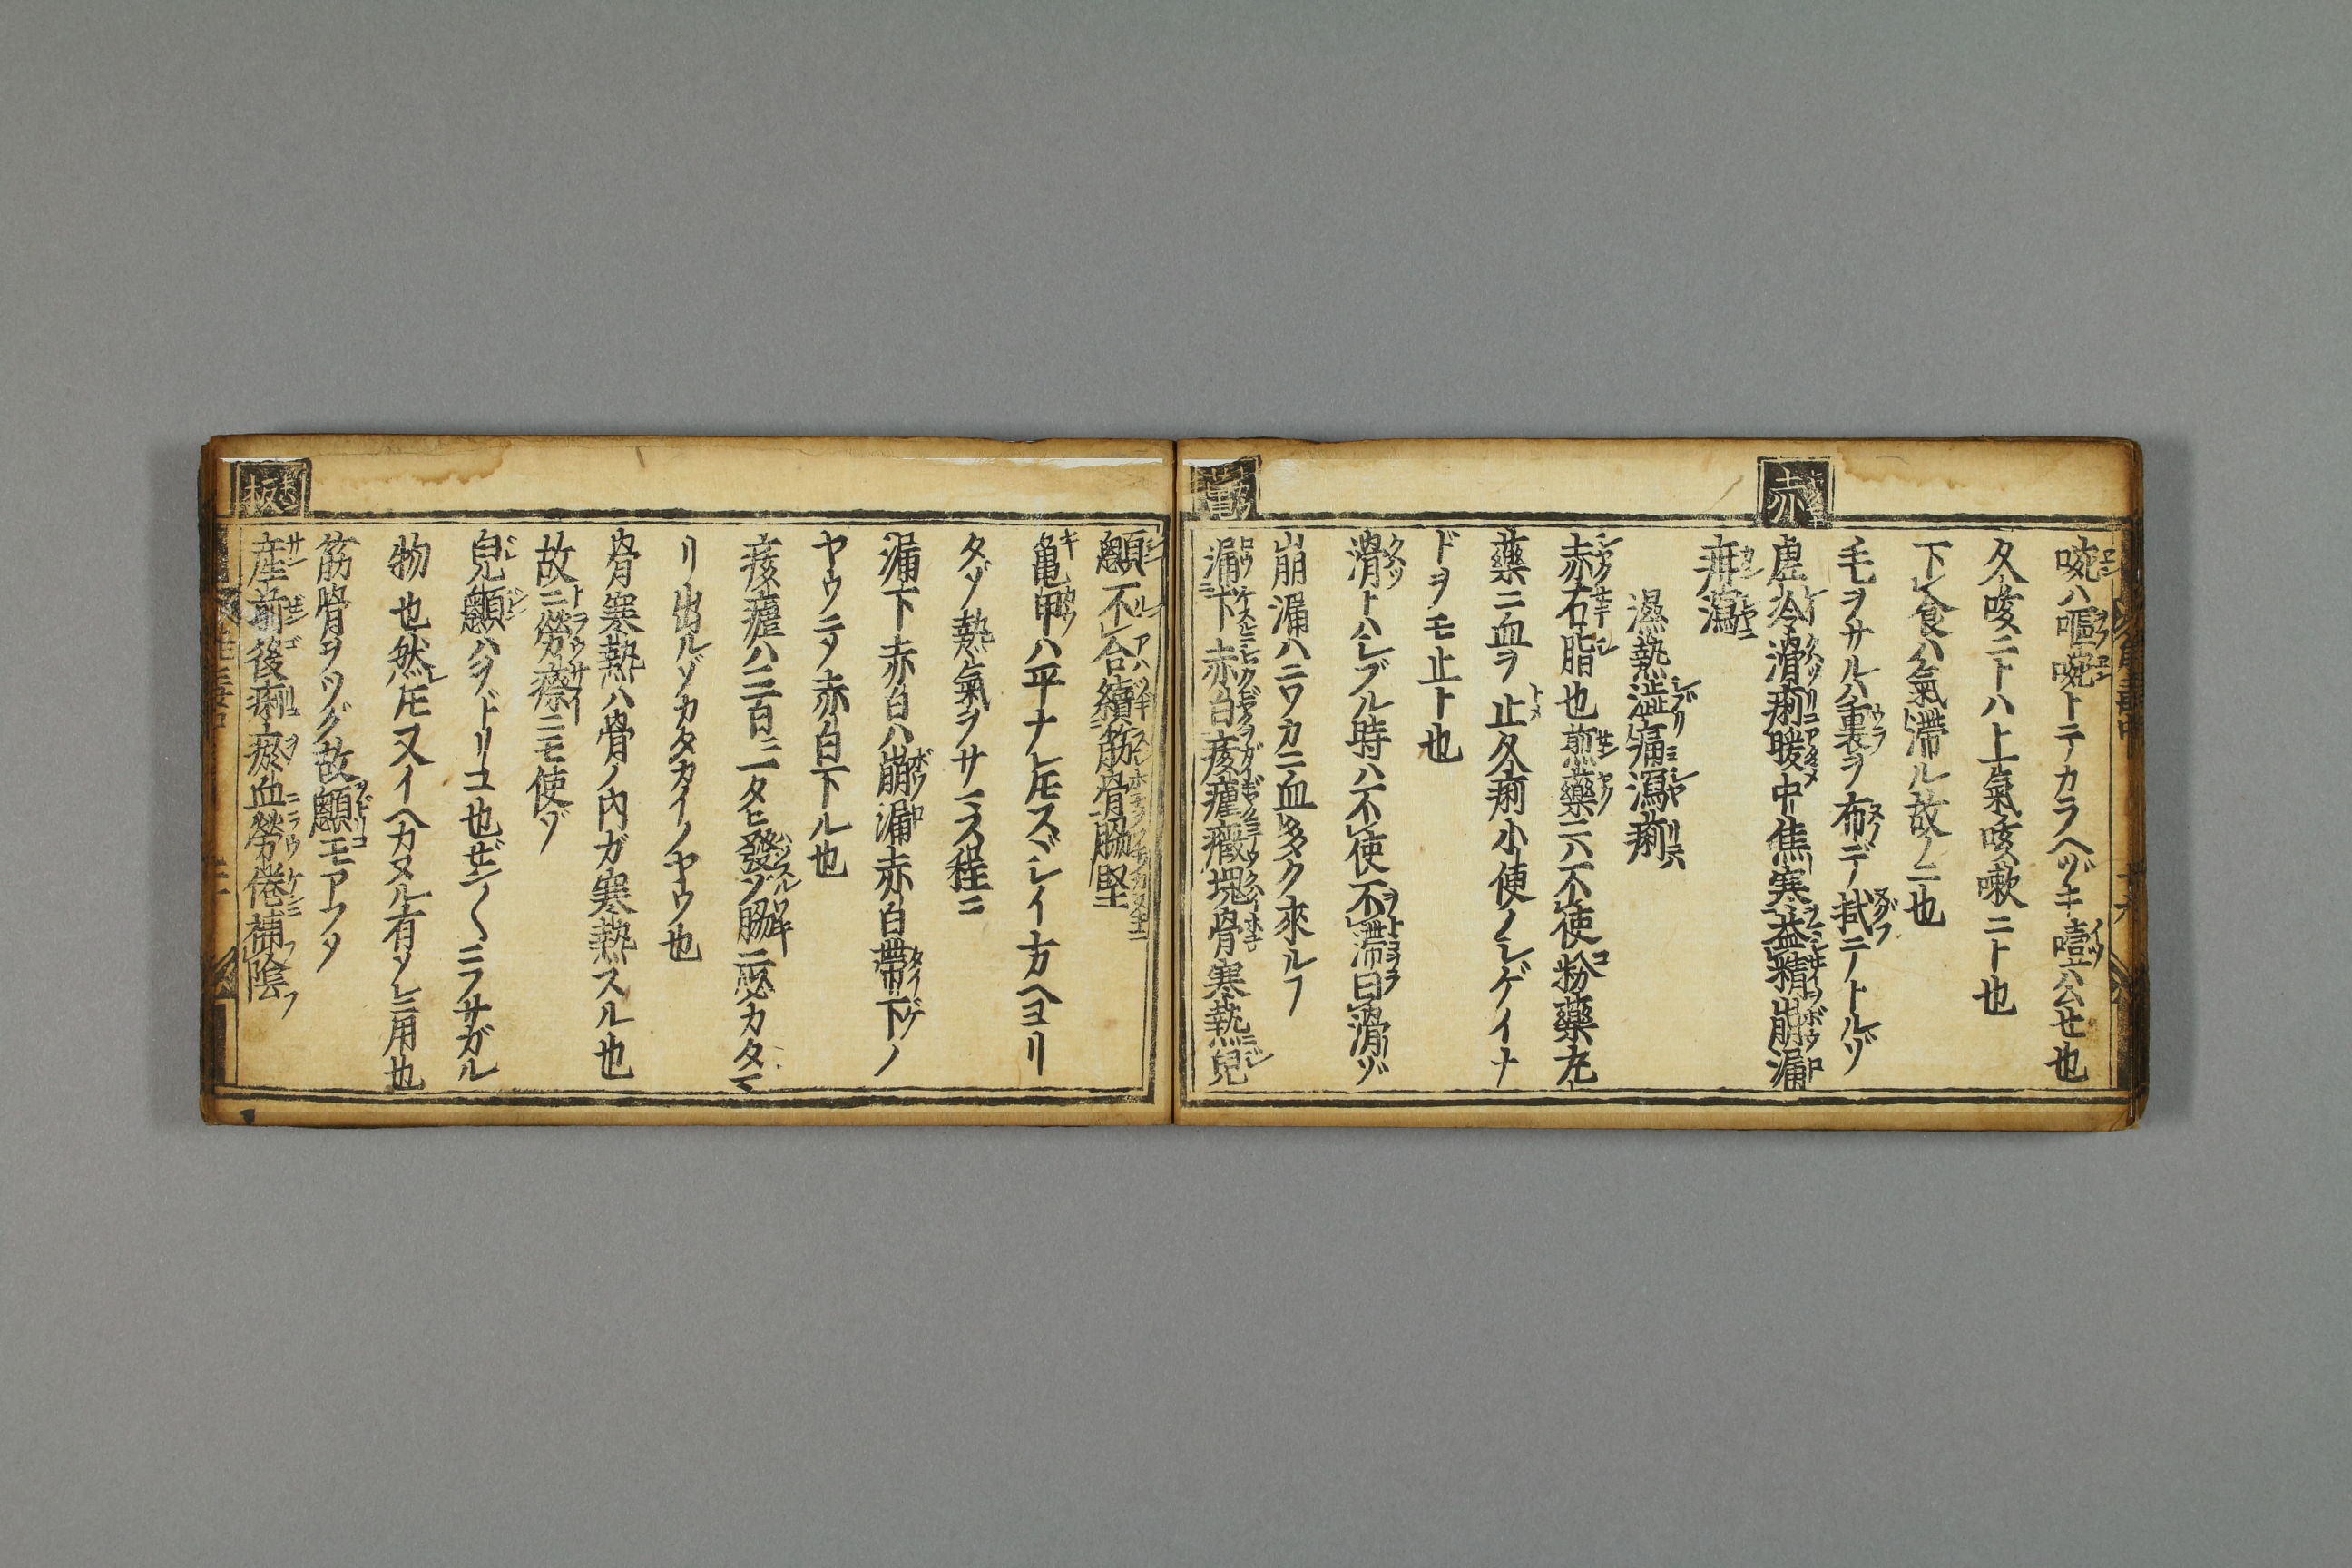 啘ハ嘔啘トテカラヘヅキ噎公セ也
久咳ニトハ上氣咳嗽ニト也
下食ハ氣滞ル故ノニ也
毛ヲサルハ重裏ヲ布デ拭テトルゾ
赤
虚冷滑痢暖中焦寒益精崩漏
疳瀉
濕熱澁痛瀉痢
赤石脂也煎藥ニハ不使粉藥丸
藥ニ血ヲ止久痢小便ノシゲイナ
ドヲモ止ト也
滑トハシブル時ハ不使不滞曰滑ゾ
崩漏ハニワカニ血多ク來ルフ
漏下赤白痎瘧癥塊骨寒熱兒
顖不合續筋骨脇堅
亀甲ハ平ナレ𪜈スヾシイ方ヘヨリ
タゾ熱氣ヲサマス程ニ
漏下赤白ハ崩漏赤白帶下ノ
ヤウニノ赤白下ル也
痎瘧ハ三日ニ一タヒ發ソ脇ニ
リ出ルゾカタカイノヤウ也
骨寒熱ハ骨ノ内ガ寒熱スル也
故ニ勞瘵ニモ使ゾ
兒顖ハヲドリコ也ゼン〱ニフサガル
物也然レ𪜈又イヘカヌル有ソレニ用也
筋骨ヲツグ故顖モアフソ
板
産前後痢瘀血勞倦補陰